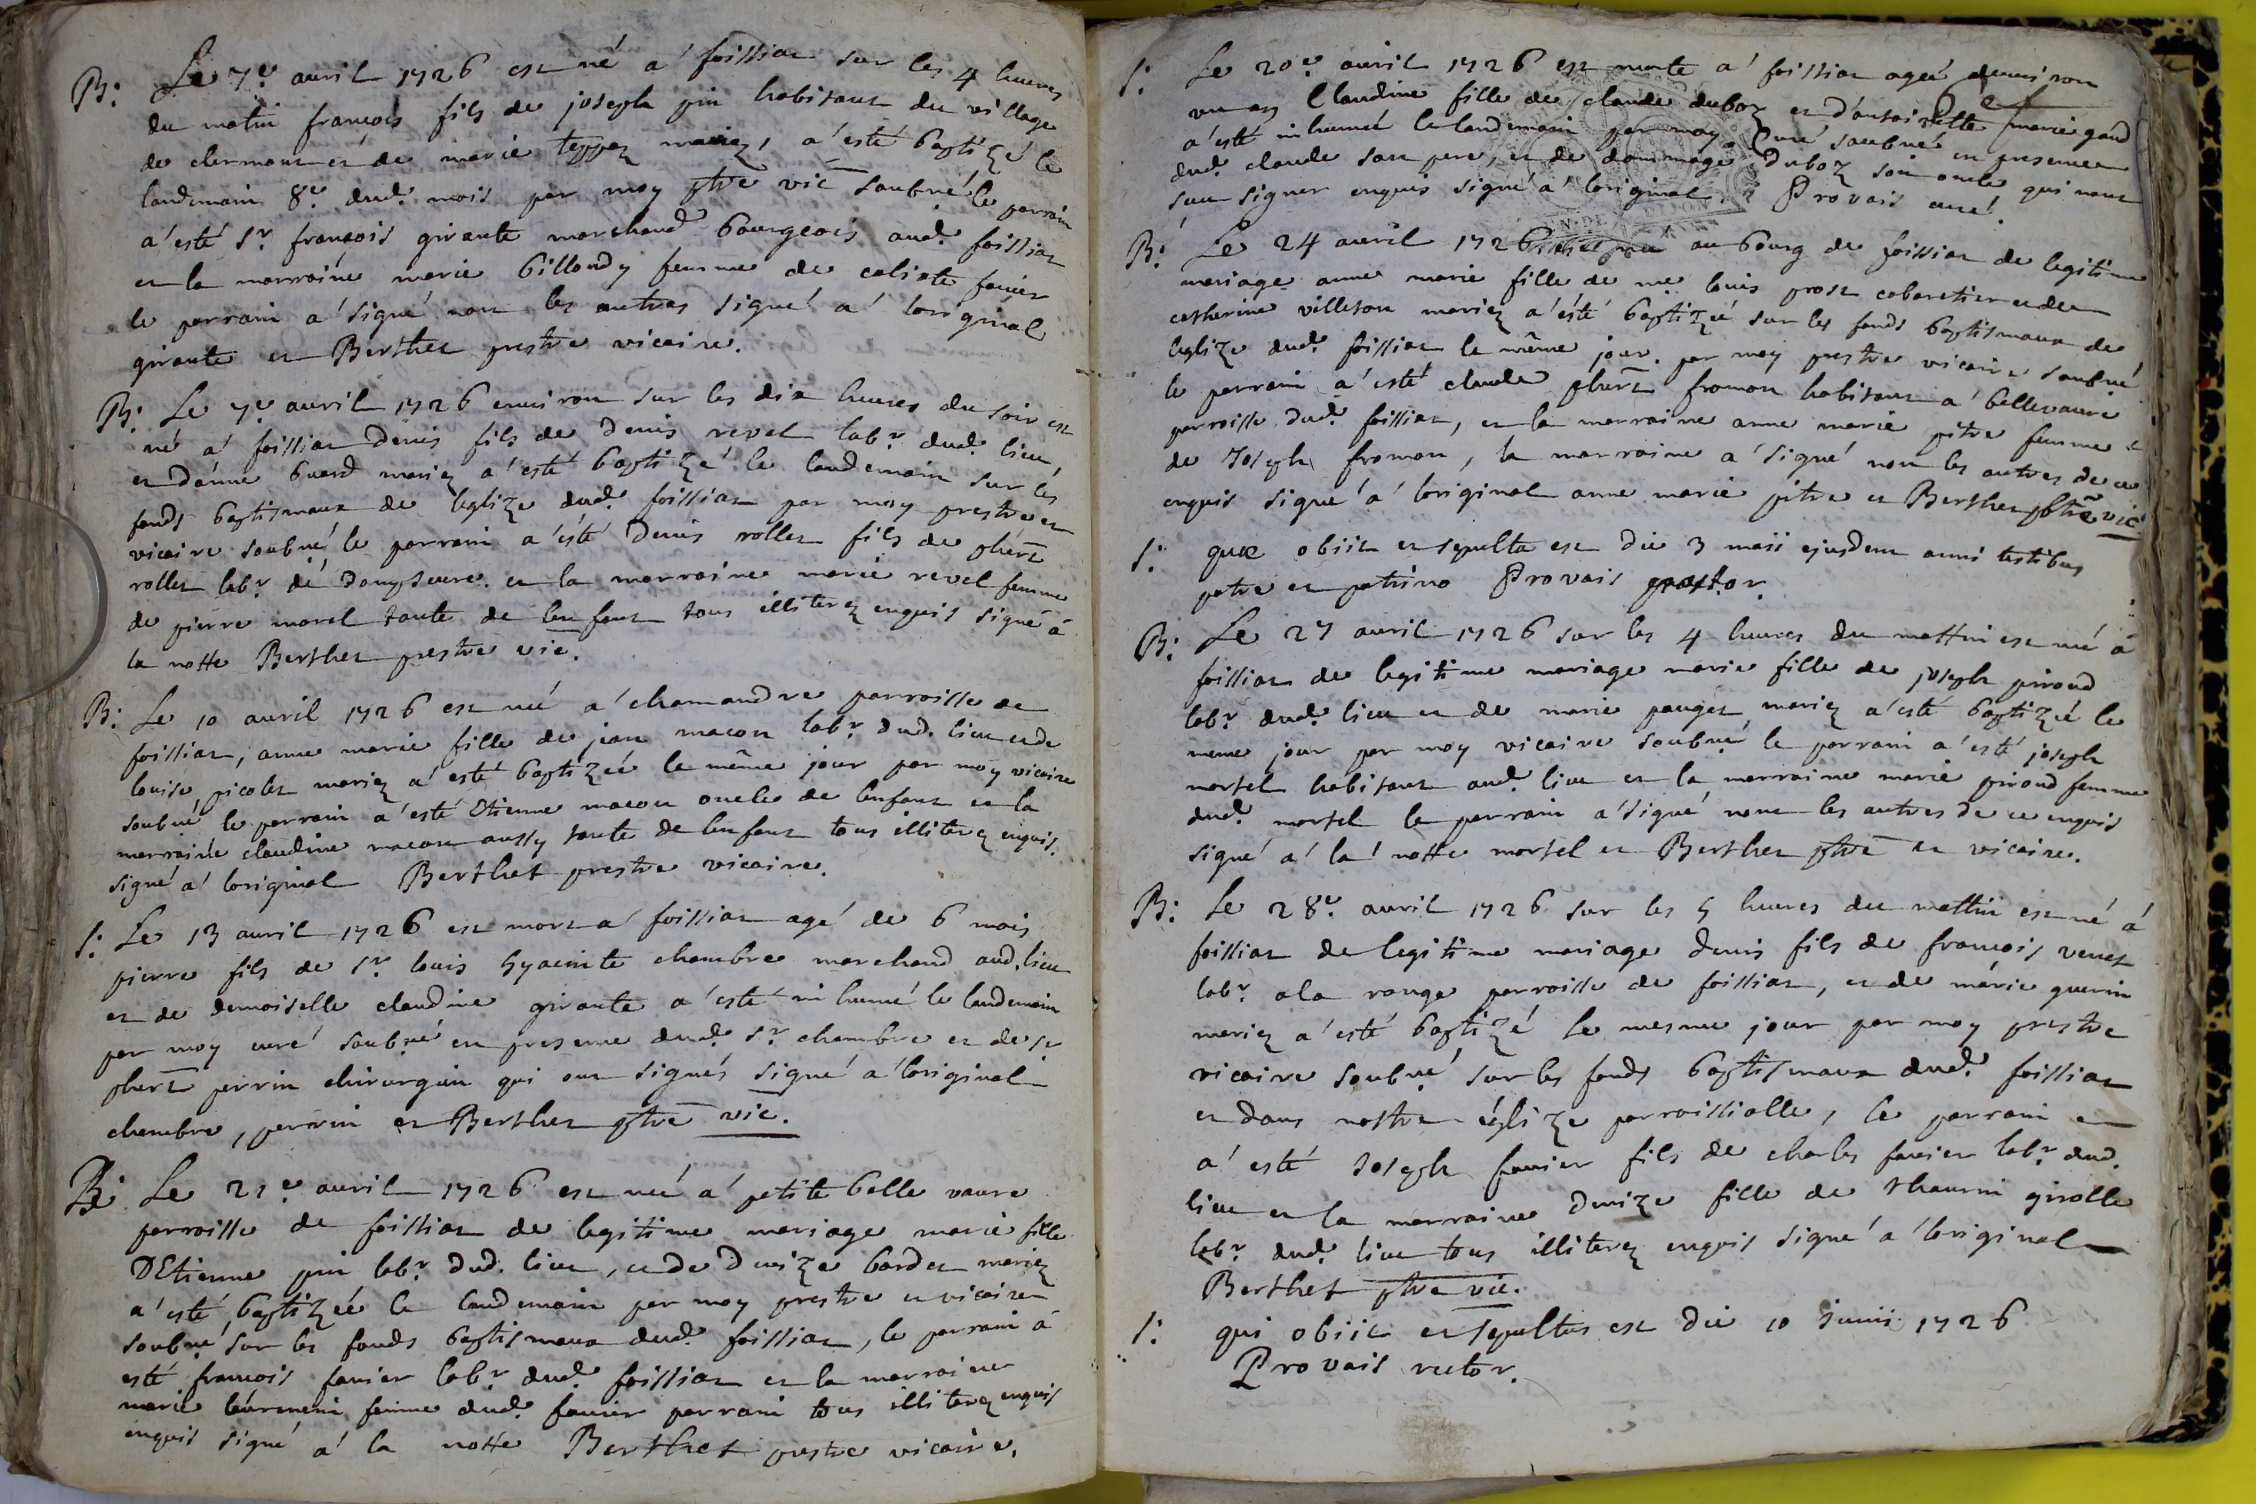 B: Le 7e. avril 1726 est né a' foissiat sur les 4 heures
du matin françois fils de joseph pin habitant du village
de clermont et de marie teppez mariez, a'esté baptizé le
landemain 8e. dud. mois par moy ptre vic soubné le parrain
a'esté Sr. françois girante marchand bourgeois aud. foissiat
et la marraine marie billoudy femme de calixte favier
le parrain a'signé non les autres signé a' loriginal
girante et Berthet prestre vicaire.
B: Le 7e avril 1726 environ sur les dix heures du soir est
né a' foissiat denis fils de denis revel labr. dud. lieu,
et d'anne buerd mariez a'esté baptizé le landemain sur les
fonds baptismaux de leglize dud. foissiat par moy prestre et
vicaire soubné le parrain a'esté denis rollet fils de phert
rollet labr. de dompseure. et la marraine marie revel femme
de pierre morel tante de lenfant tous illiterez enquis signé a
la notte Berthet prestre vic.
B: Le 10 avril 1726 est née a' chamandre parroisse de
foissiat, anne marie fille de jean macon labr. dud. lieu et de
louise picolet mariez a'esté baptizéé le même jour par moy vicaire
soubné le parrain a'esté Etienne macon oncle de lenfant et la
marraine claudine macon aussy tante de lenfant tous illiterez enquis.
signé a' loriginal Berthet prestre vicaire.
S: Le 13 avril 1726 est mort a' foissiat agé de 6 mois
pierre fils de sr. louis hyacinte chambre marchand aud. lieu
et de demoiselle claudine girante a'esté inhumé le landemain
par moy curé soubné en presence dud. sr. chambre et de sr
phert perrin chirurgien qui ont signés signé a'loriginal
chambre, perrin et Berthet ptre vic.
B: Le 21e avril 1726 est née a' petite belle vaure
parroisse de foissiat de legitime mariage marie fille
D'Etienne pin labr. dud. lieu, et de denize bordet mariez
a'esté baptizéé le landemain par moy prestre et vicaire
soubné sur les fonds baptismaux dud. foissiat, le parrain a
esté françois favier labr. dud. foissiat et la marraine
marie femme dud. favier parrain tous illiterez enquis
enquis signé a' la notte Berthet prestre vicaire.
S: Le 20e. avril 1726 est morte a' foissiat ageé denviron
un an Claudine fille de claude duboz et d'antoinette marie gaud
a'esté inhumeé le landemain par moy Curé soubné en presence
dud. claude son pere, et de dommage Duboz son oncle qui nont
sceu signer enquis signé a' loriginal. Provais curé.
B: Le 24 avril 1726 est née au bourg de foissiat de legitime
mariage anne marie fille de me louis prost cabaretier et de
catherine villeton mariez a'esté baptizéé sur les fonds baptismaux de
leglize dud. foissiat le même jour. par moy prestre vicaire soubné
le parrain a'esté claude phert fromon habitant a' bellevaure
parroisse dud. foissiat, et la marraine anne marie pitre femme
de Joseph fromon, la marraine a'signé non les autres de ce
enquis signé a' loriginal anne marie pitre et Berthet ptre vic
S: quæ obiit et sepulta est die 3 maii ejusdem anni testibus
patre et patrino Provais pastor.
B: Le 27 avril 1726 sur les 4 heures du mattin est née a
foissiat de legitime mariage marie fille de joseph piroud
labr. dud. lieu et de marie pauget mariez a'esté baptizéé le
meme jour par moy vicaire soubné le parrain a'esté joseph
mortel habitant aud. lieu et la marraine marie piroud femme
dud. mortel le parrain a'signé non les autres de ce enquis
signé a' la' notte mortel et Berthet ptre et vicaire.
B: Le 28e. avril 1726 sur les 5 heures du mattin est né á
foissiat de legitime mariage denis fils de françois venet
labr. a la range parroisse de foissiat, et de marie guerin
mariez a'esté baptizé le mesme jour par moy prestre
vicaire soubné sur les fonds baptismaux dud. foissiat
et dans nostre églize parroissialle, le parrain en
a' esté Joseph favier fils de charles favier labr. dud.
lieu et la marraine denize fille de thaurin girolle
labr. dud. lieu tous illiterez enquis signé a' loriginal
Berthet ptre vic.
S: qui obiit et sepultus est die 10 junii 1726
Provais rector.